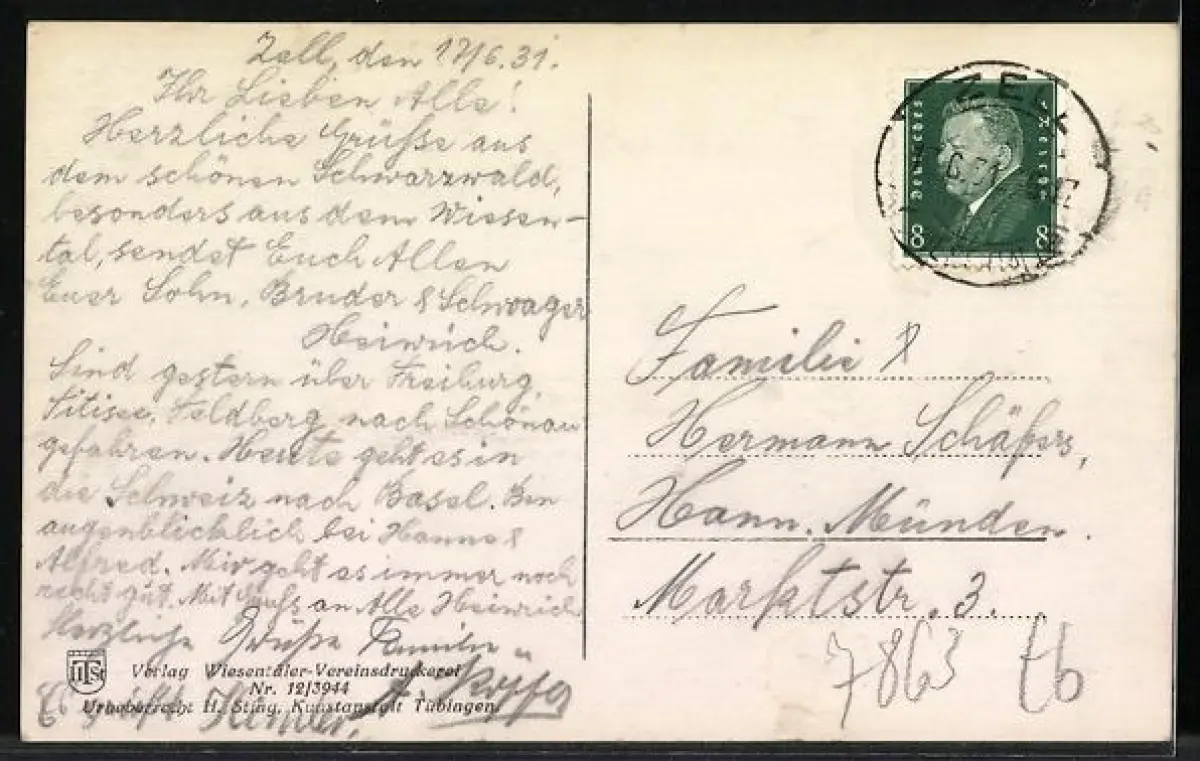 Zell, den 17/6.31.
Ihr Lieben Alle!
Herzliche Grüße aus
dem schönen Schwarzwald,
besonders aus dem Wiesen-
tal, sendet Euch Allen
Euer Sohn, Bruder & Schwager
Heinrich.
Sind gestern über Freiburg,
Titisee, Feldberg nach Schönau
gefahren. Heute geht es in
die Schweiz nach Basel. Bin
augenblicklich bei Hanne &
Alfred. Mir geht es immer noch
recht gut. Mit Gruß an Alle Heinrich
Herzliche Grüße Familie
Verlag Wiesentäler-Vereinsdruckerei
Nr. 12/3944
Urheberrecht H. Sting, Kunstanstalt Tübingen
HTSt
Deutsches Reich
8 8
Familie
Hermann Schäfers,
Hann. Münden.
Marktstr. 3.
7863 tb